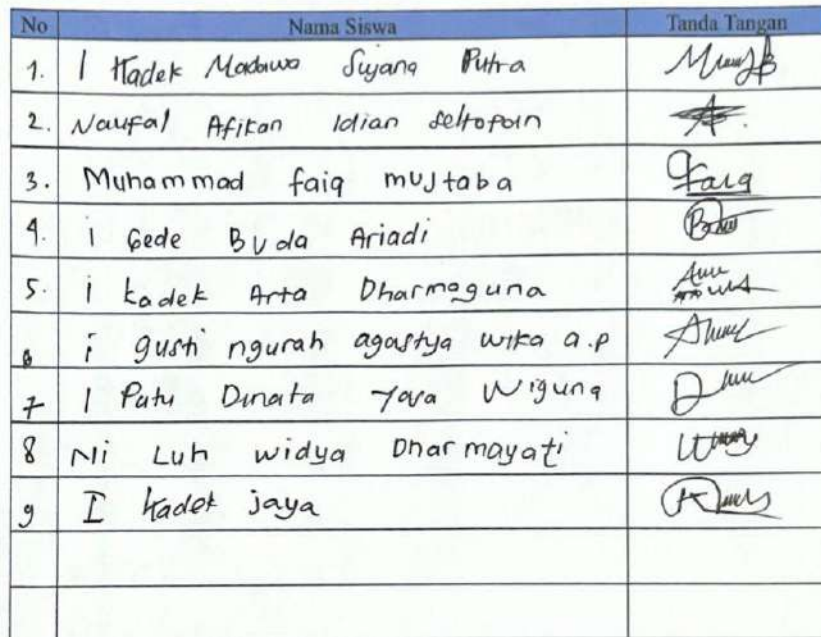 No Nama Siswa Tanda Tangan
1. I Kadek Madawa Sujana Putra
2. Naufal Afikan Idian
3. Muhammad faiq mujtaba Faiq
4. i Gede Buda Ariadi
5. i kadek Arta Dharmaguna
6 i gusti ngurah agastya wika a.p
7 I Putu Dinata Yoga Wiguna
8 Ni Luh widya Dharmayati
9 I Kadek jaya